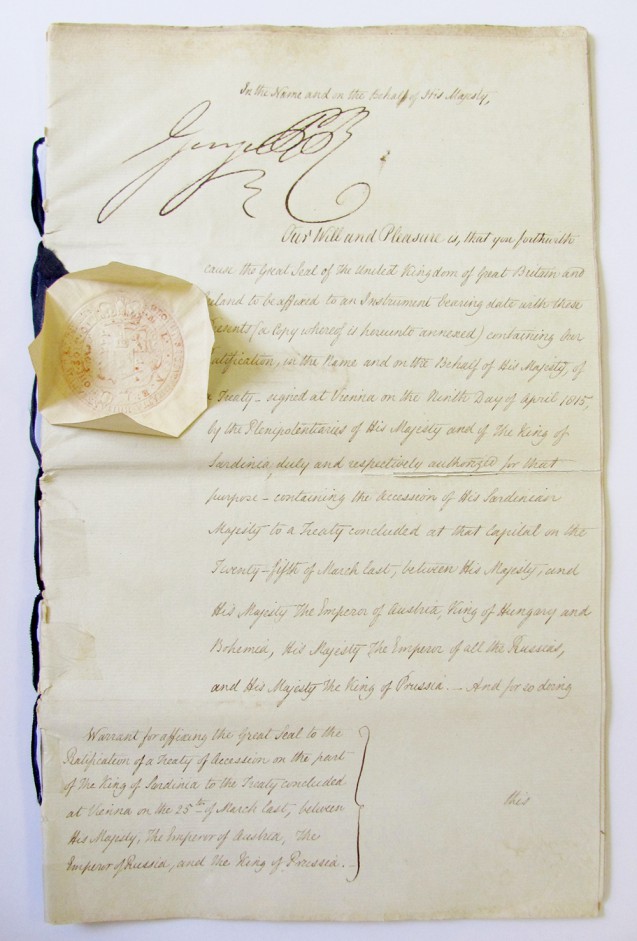 In the Name and on the Behalf of His Majesty,
George PR
Our Will and Pleasure is, that you forthwith
cause the Great Seal of The United Kingdom of Great Britain and
Ireland to be affixed to an Instrument bearing date with these
(a Copy whereof is hereunto annexed) containing Our
in the Name and on the Behalf of His Majesty, of
a Treaty – signed at Vienna on the Ninth Day of April 1815,
by the Plenipotentiaries of His Majesty and of The King of
Sardinia, duly and respectively authorized for that
purpose – containing the Accession of His Sardinian
Majesty to a Treaty concluded at that Capital on the
Twenty-fifth of March last, between His Majesty, and
His Majesty The Emperor of Austria, King of Hungary and
Bohemia, His Majesty The Emperor of all the Russias,
and His Majesty The King of Prussia. — And for so doing
this
Warrant for affixing the Great Seal to the
Ratification of a Treaty of Accession on the part
of The King of Sardinia to the Treaty concluded
at Vienna on the 25th of March last, between
His Majesty, The Emperor of Austria, The
Emperor of Russia, and The King of Prussia. –